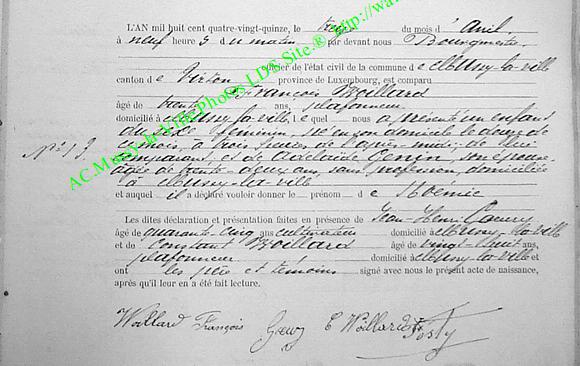 L'AN mil huit cent quatre-vingt-quinze, le treize du mois d'avril
à neuf heures du matin par devant nous Bourgmestre
officier de l'état civil de la commune de Mussy-la-ville
canton de Virton province de Luxembourg, est comparu
François Woillard
âgé de trente ans, plafonneur
domicilié à Mussy-la-ville, lequel nous a présenté un enfant
du sexe féminin, né en son domicile le douze de
ce mois, à trois heures de l'après-midi; de lui
comparant, et de Adelaïde Genin, son épouse
âgée de trente-deux ans, sans profession, domiciliée
à Mussy-la-ville
et auquel il a déclaré vouloir donner le prénom de Noémie
Les dites déclaration et présentation faites en présence de Jean-Henri
âgé de quarante-cinq ans cultivateur domicilié à Mussy-la-ville
et de Constant Woillard âgé de vingt-huit ans,
plafonneur domicilié à Mussy-la-ville et
ont les père et témoins signé avec nous le présent acte de naissance,
après qu'il leur en a été fait lecture.
N° 13.
Woillard François C Woillard
AC.Mussy-la-Ville Photos LDE Site.® http://wa